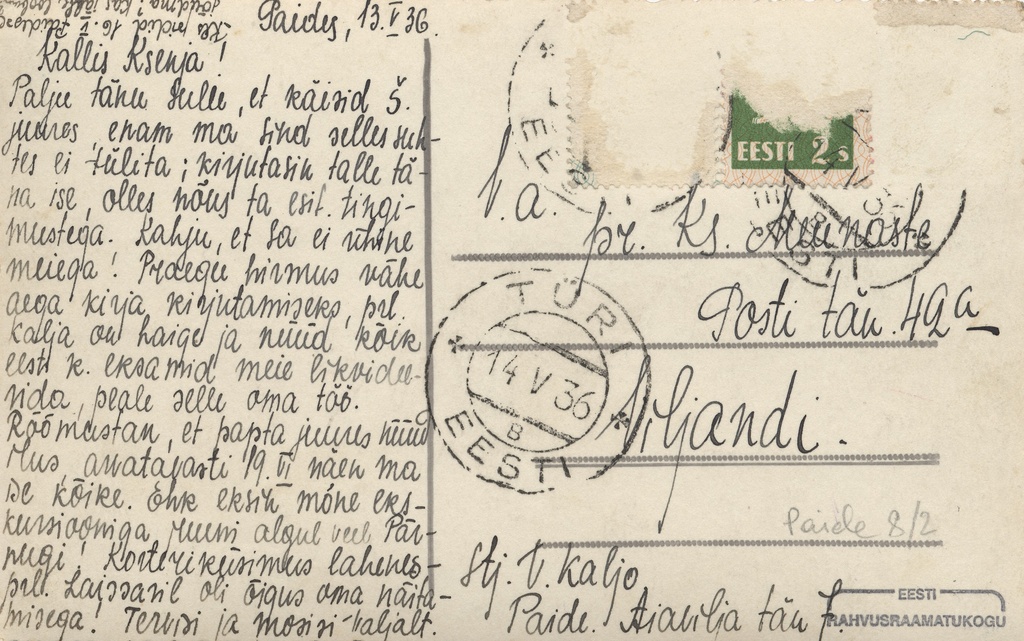 Kas nüüd 16. V Paides
Paides, 13. V 36.
Kallis Ksenja!
Palju tänu Sulle, et käisid Š.
juures, enam ma Sind selles suh-
tes ei tülita; kirjutasin talle tä-
na ise, olles nõus ta esit. tingi-
mustega. Kahju, et Sa ei ühine
meiega! Praegu hirmus vähe
aega kirja kirjutamiseks, prl.
Kalja on haige ja nüüd kõik
eesti k. eksamid meie likvidee-
rida, peale selle oma töö.
Rõõmustan, et papta juures nüüd
uus, arvatavasti 19. VI näen ma
se kõike. Ehk eksin mõne eks-
kursiooniga juuni algul veel Pär-
nugi! Korteriküsimus lahenes -
prl. Laissaril oli õigus oma näita-
misega! Tervisi ja mosisi Valjalt.
EESTI
EESTI 2 s
EESTI
V. a.
pr. Ks. Muinaste
Posti tän. 49a
Viljandi.
TÜRI
14 V 36
B
EESTI
Paide 8/2
Stj. V. Kaljo
Paide. Aiavilja tän 7
EESTI
RAHVUSRAAMATUKOGU